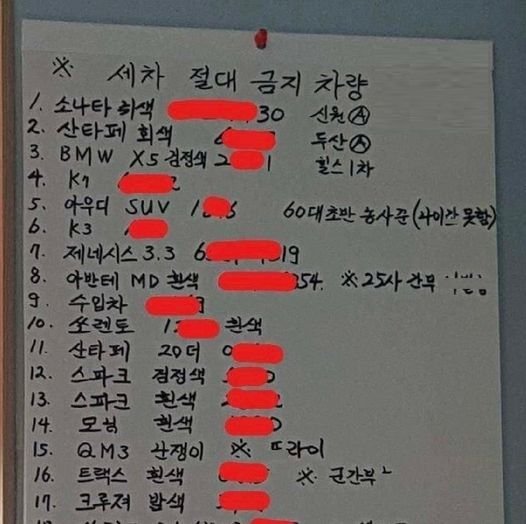 ※ 세차 절대 금지 차량
1. 소나타 회색 30 신원 Ⓐ
2. 산타페 회색 6 두산 Ⓐ
3. BMW X5 검정색 2 1 힐스 1차
4. K7 2
5. 아우디 SUV 1 60대초반 농사꾼 (나이값 못함)
6. K3
7. 제네시스 3.3 6 19
8. 아반테 MD 흰색 354. ※ 25사 간부
9. 수입차
10. 쏘렌토 1 흰색
11. 산타페 20더 0
12. 스파크 검정색 0
13. 스파크 흰색
14. 모닝 흰색 0
15. QM3 난쟁이 ※ 또라이
16. 트랙스 흰색 ※ 군간부
17. 크루져 밤색